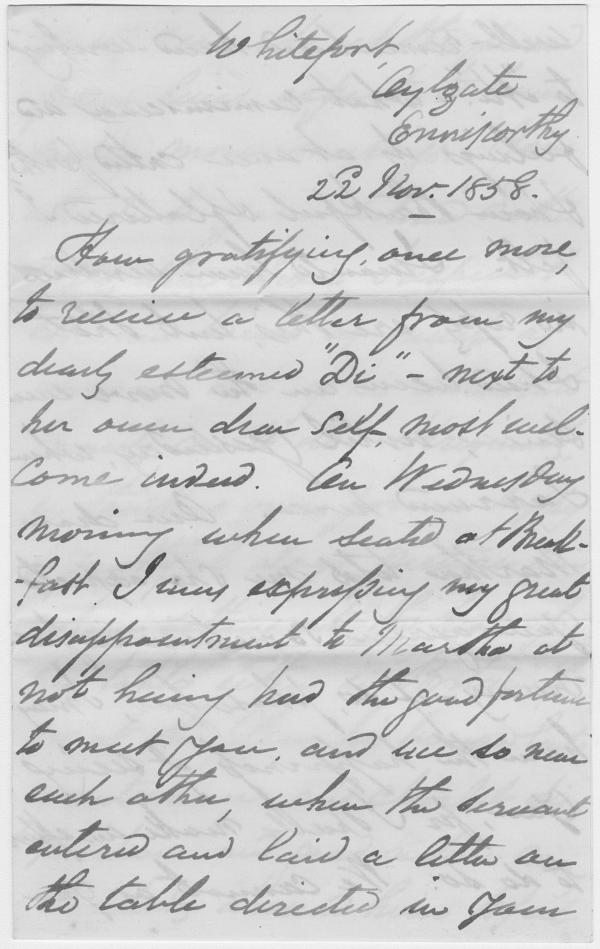 Whitefort,
Oylgate
Enniscorthy
22d Nov. 1858.
How gratifying, once more,
to receive a letter from my
dearly esteemed "Di" – next to
her own dear self, most wel-
come indeed. On Wednesday
morning when seated at Break-
-fast I was expressing my great
disappointment to Martha at
not having had the good fortune
to meet you, and we so near
each other, when the servant
entered and laid a letter on
the table directed in your